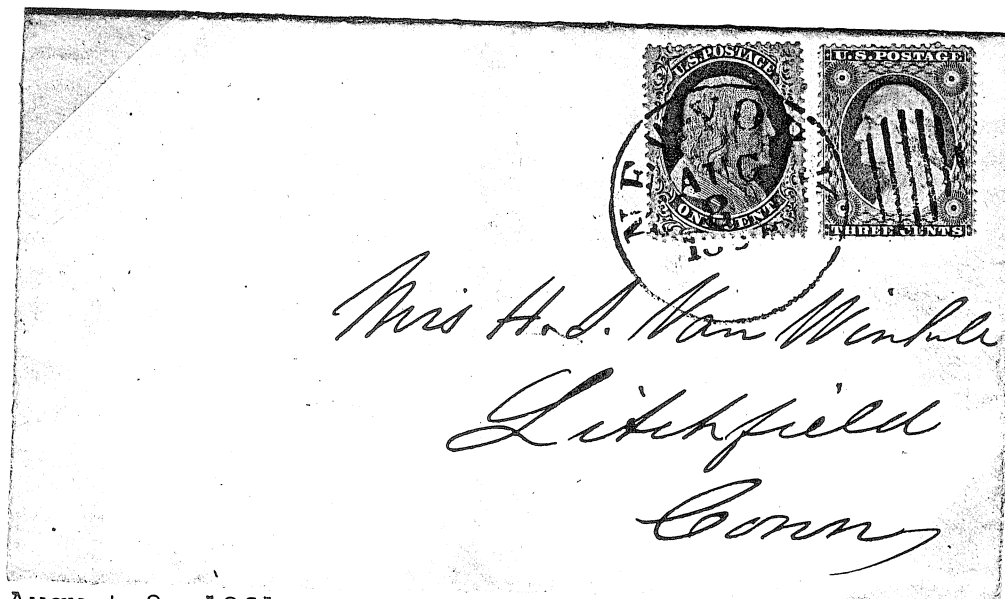 U.S. POSTAGE
ONE CENT
U.S. POSTAGE
THREE CENTS
NEW YO
AUG
Mrs H. S. Van Winkle
Litchfield
Conn